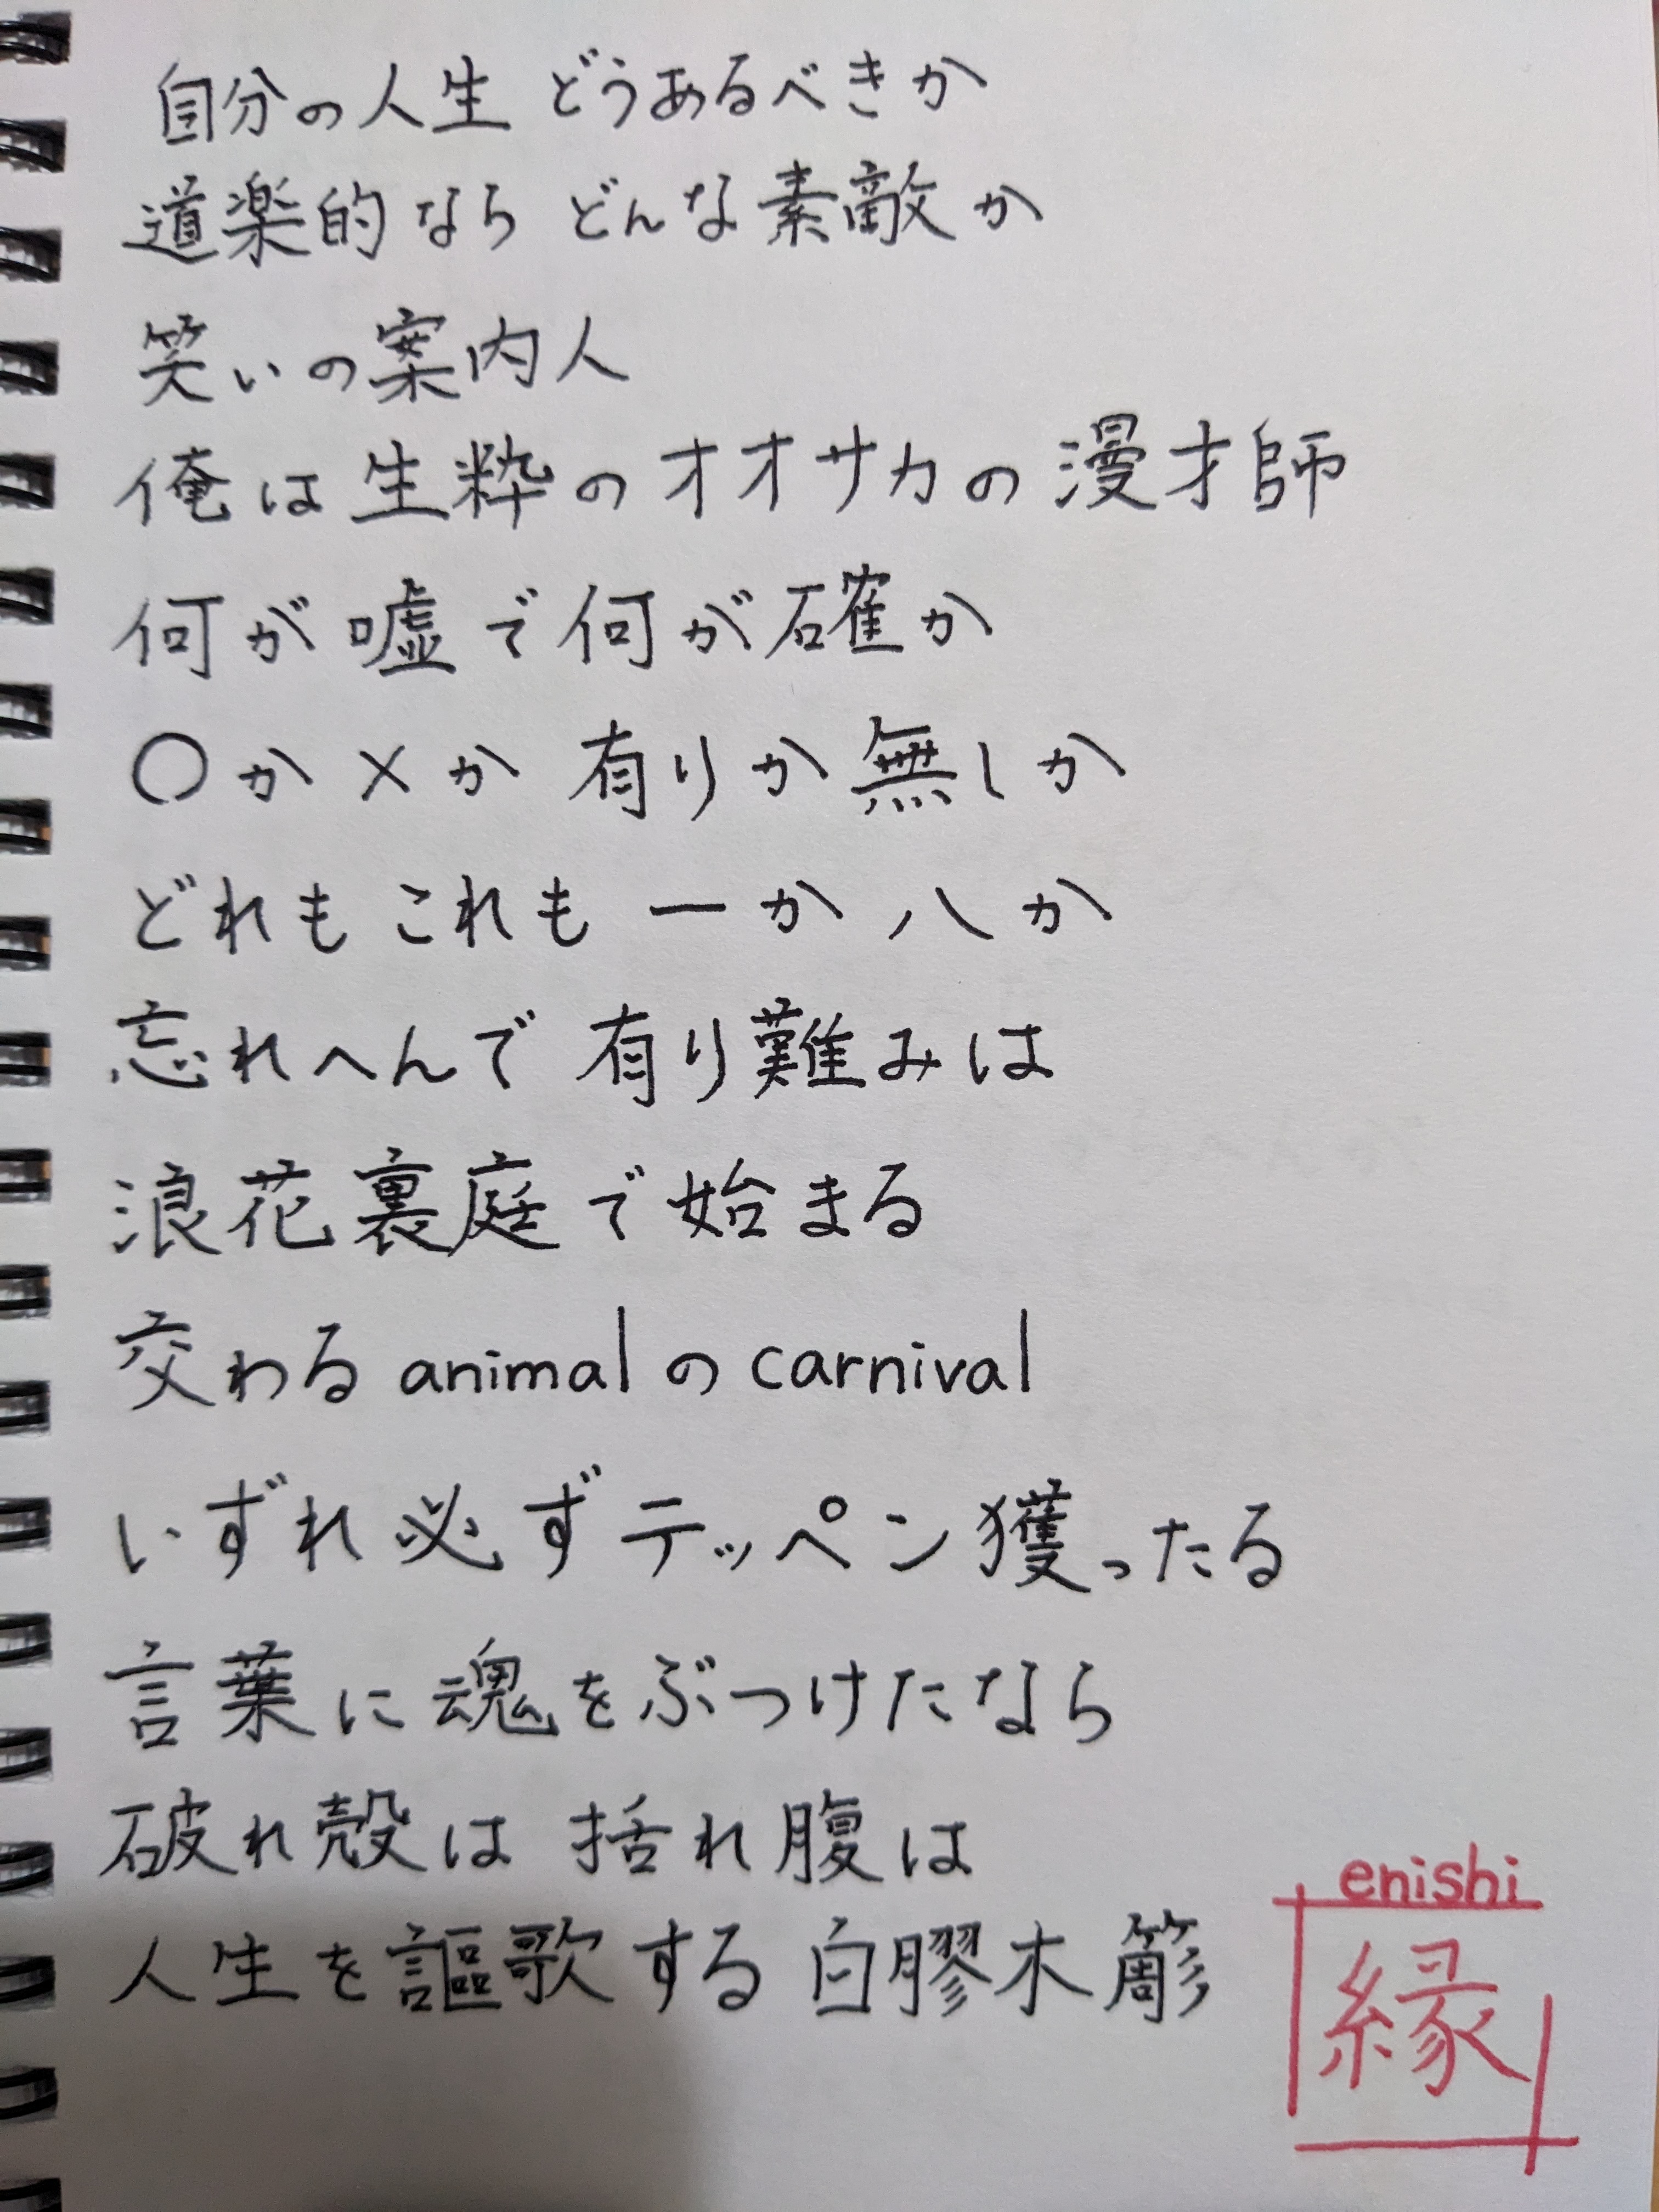 自分の人生 どうあるべきか
道楽的なら どんな素敵か
笑いの案内人
俺は生粋のオオサカの漫才師
何が嘘で何が確か
○か×か 有りか無しか
どれもこれも 一か八か
忘れへんで 有り難みは
浪花裏庭で始まる
交わるanimalのcarnival
いずれ必ずテッペン獲ったる
言葉に魂をぶつけたなら
破れ殻は 括れ腹は
人生を謳歌する 白膠木簓
enishi
縁